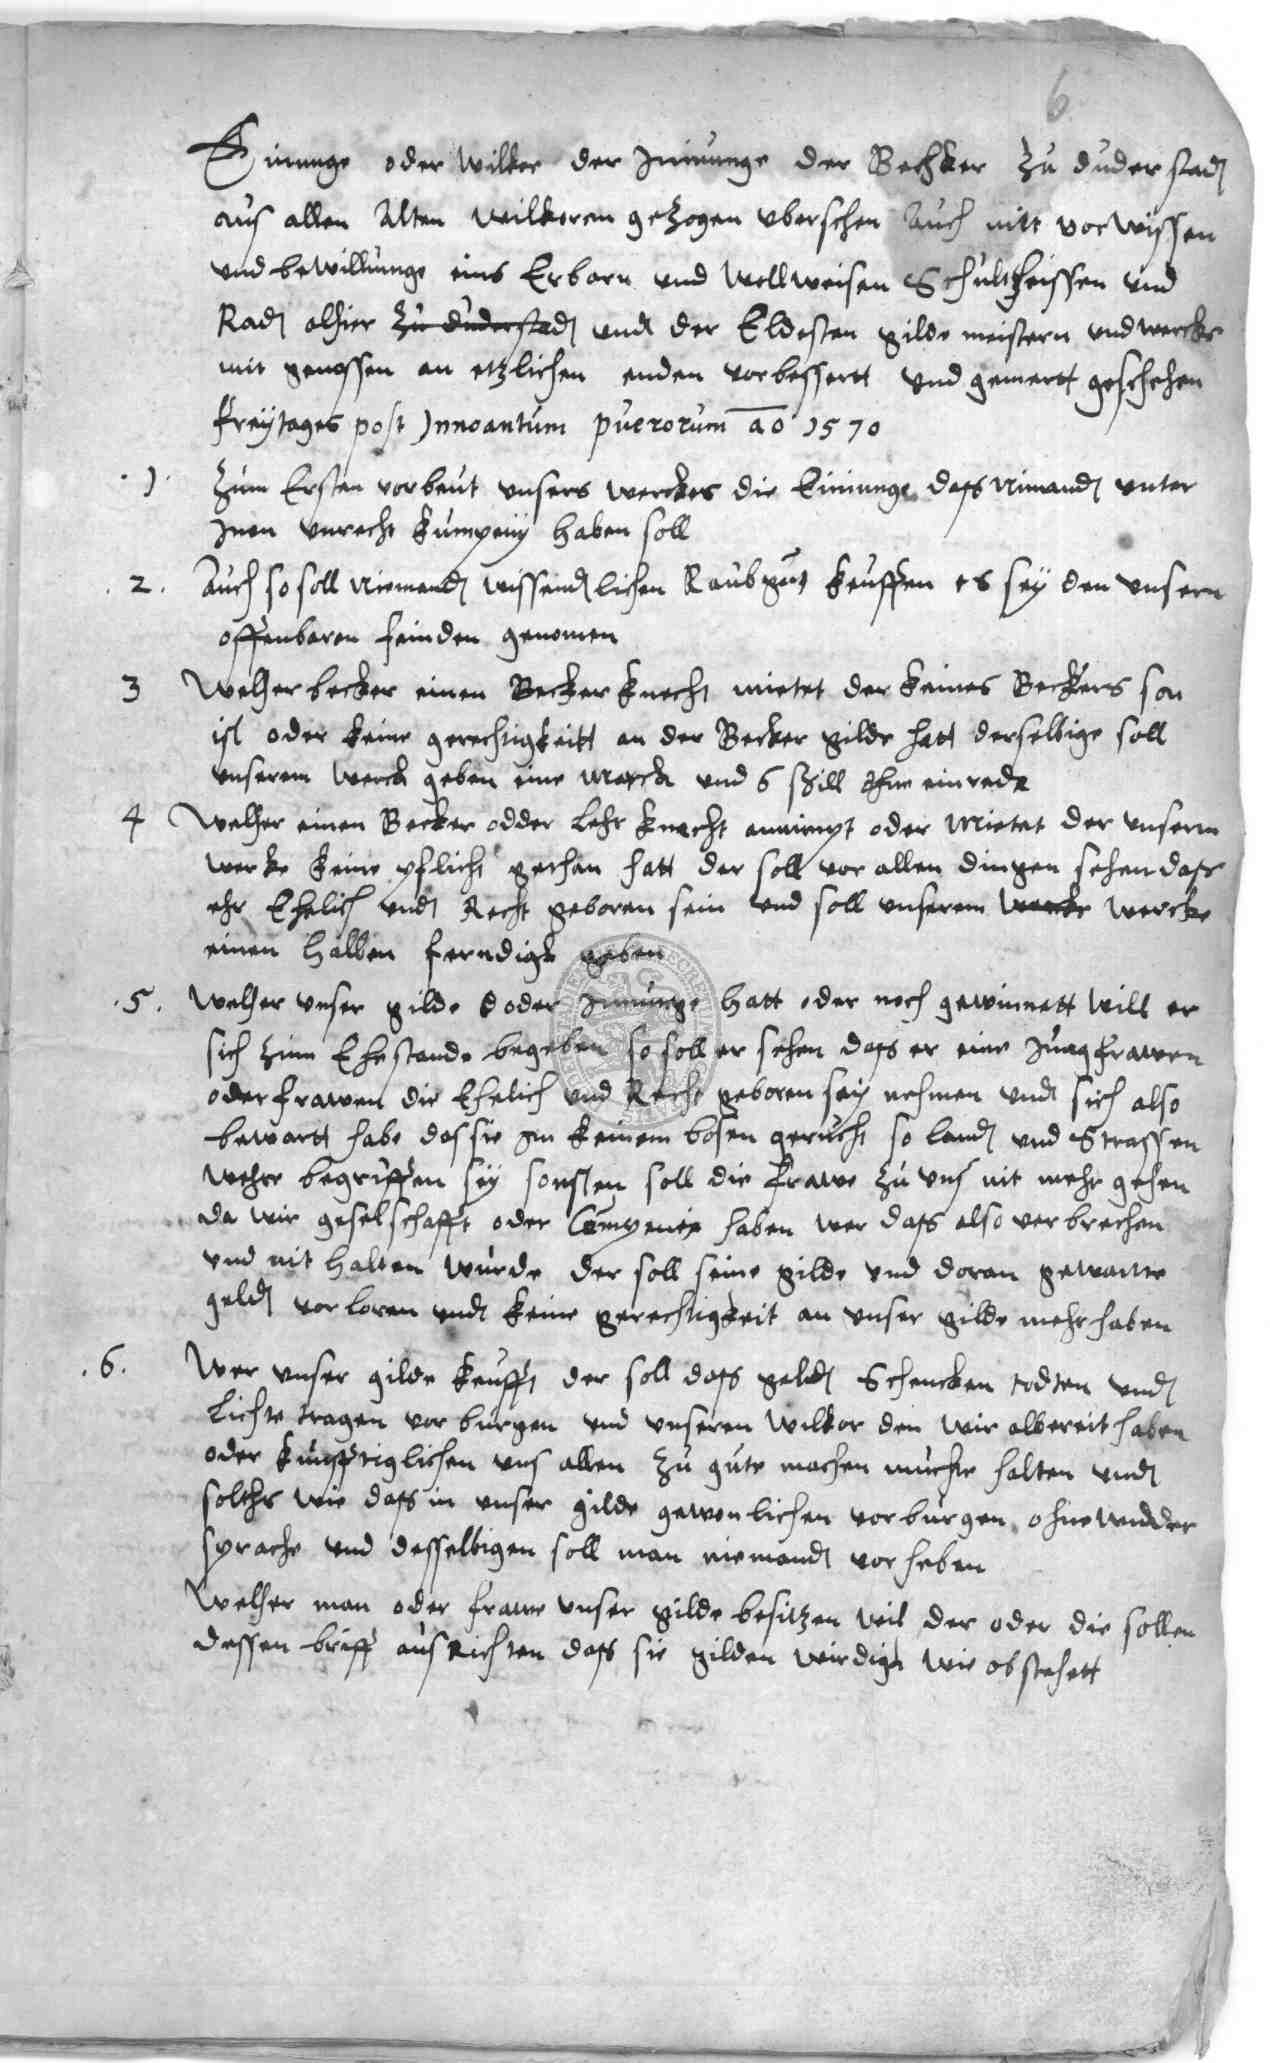 6
Einunge oder Wilkor der Innunge der Becker Zu duderstadt
aus allen Alten wilkoren gezogen ubersehen Auch mitt vorwissen
und bewillunge eins Erbarn und wollweisen Schultheissen und
Radt alhier Zu duderstadt undt der Eldesten gilde meistern und wercks
mit genossen an etzlichen enden vorbessertt und gemertt geschehen
freytages post Innocentum puerorum ao 1570
1. Zum Ersten vorbeut unsers werckes die Einunge dass Nimandt unter
Inen unrecht kumpany haben soll
2. Auch so soll Niemandt wissendtlichen Raubgut keuffen es sey den unsern
offenbaren feinden genomen
3 Welcher becker einen Becker knecht mietet der keines Beckers son
ist oder keine gerechtigkeitt an der Becker gilde hatt derselbige soll
unserem werck geben eine Marck und 6 schill ohne einrede
4 Welcher einen Becker odder Lehr knecht annimpt oder Mietet der unserm
wercke keine pflicht gethan hatt der soll vor allen dingen sehen dass
ehr Ehelich undt Recht geboren sein und soll unserem wercke wercke
einen halben ferndigk geben
5. Welcher unser gilde oder Innunge hatt oder noch gewinnett will er
sich zum Ehestande begeben so soll er sehen dass er eine Jungfrawen
oder frawen die Ehelich und Recht geboren sey nehmen undt sich also
bewartt habe das sie Im keinem bosen gerucht so landt und Strassen
wehre begriffen sey sonsten soll die frawe zu uns nit mehr gehen
da wir geselschafft oder Cumpenie haben wer dass also verbrechen
und nit halten wurde der soll seine gilde und doran gewante
geldt vorloren undt keine gerechtigkeit an unser gilde mehr haben
6. Wer unser gilde keufft der soll dass geldt Schencken todten undt
Lichte tragen vorburgen und unseren wilkor den wir albereit haben
oder kunfftiglichen uns allen zu gute machen muchte halten undt
solchs wie dass in unser gilde gewonlichen vorburgen ohne widder
sprache und desselbigen soll man niemandt vorheben
Welcher man oder frawe unser gilde besitzen wil der oder die sollen
dessen brieff ausrichten dass sie gilden wirdigk wie obstehett